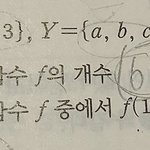 3}, Y={a, b, c
함수 f의 개수
함수 f 중에서 f(1